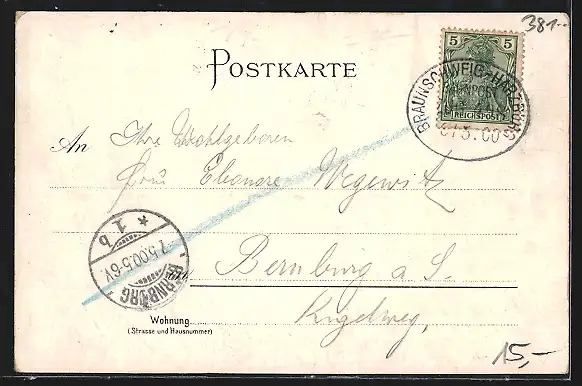 381.--
5 5
REICHSPOST
BRAUNSCHWEIG-HARZBURG
BAHNPOST
7.5.00
POSTKARTE
An Ihre Wohlgeboren
Frau Eleonore Wegewitz
BERNBURG
7.5.00.5-6V.
* 1 b
in
Bernburg a S.
Wohnung
(Strasse und Hausnummer)
Kugelweg,
15,-